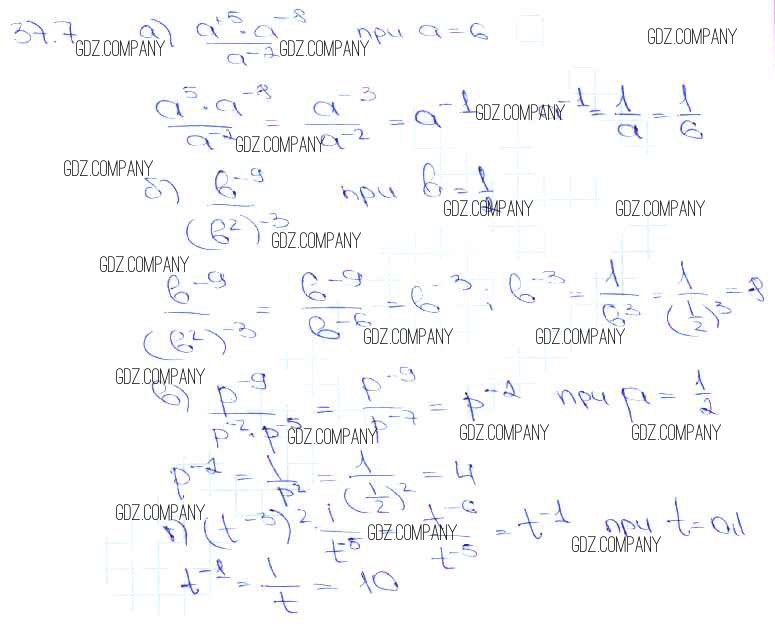 37.7 а) (a⁵·a⁻⁸)/a⁻² при a=6 GDZ.COMPANY GDZ.COMPANY GDZ.COMPANY
(a⁵·a⁻⁸)/a⁻² = a⁻³/a⁻² = a⁻¹ a⁻¹ = 1/a = 1/6 GDZ.COMPANY GDZ.COMPANY
GDZ.COMPANY
б) b⁻⁹/(b²)⁻³ при b = 1/2 GDZ.COMPANY GDZ.COMPANY GDZ.COMPANY
GDZ.COMPANY
b⁻⁹/(b²)⁻³ = b⁻⁹/b⁻⁶ = b⁻³; b⁻³ = 1/b³ = 1/(1/2)³ = 8 GDZ.COMPANY GDZ.COMPANY
GDZ.COMPANY
в) p⁻⁹/(p⁻²·p⁻⁵) = p⁻⁹/p⁻⁷ = p⁻² при p = 1/2 GDZ.COMPANY GDZ.COMPANY GDZ.COMPANY
p⁻² = 1/p² = 1/(1/2)² = 4
GDZ.COMPANY
г) (t⁻³)²·1/t⁻⁵ = t⁻⁶/t⁻⁵ = t⁻¹ при t=0,1 GDZ.COMPANY GDZ.COMPANY
t⁻¹ = 1/t = 10